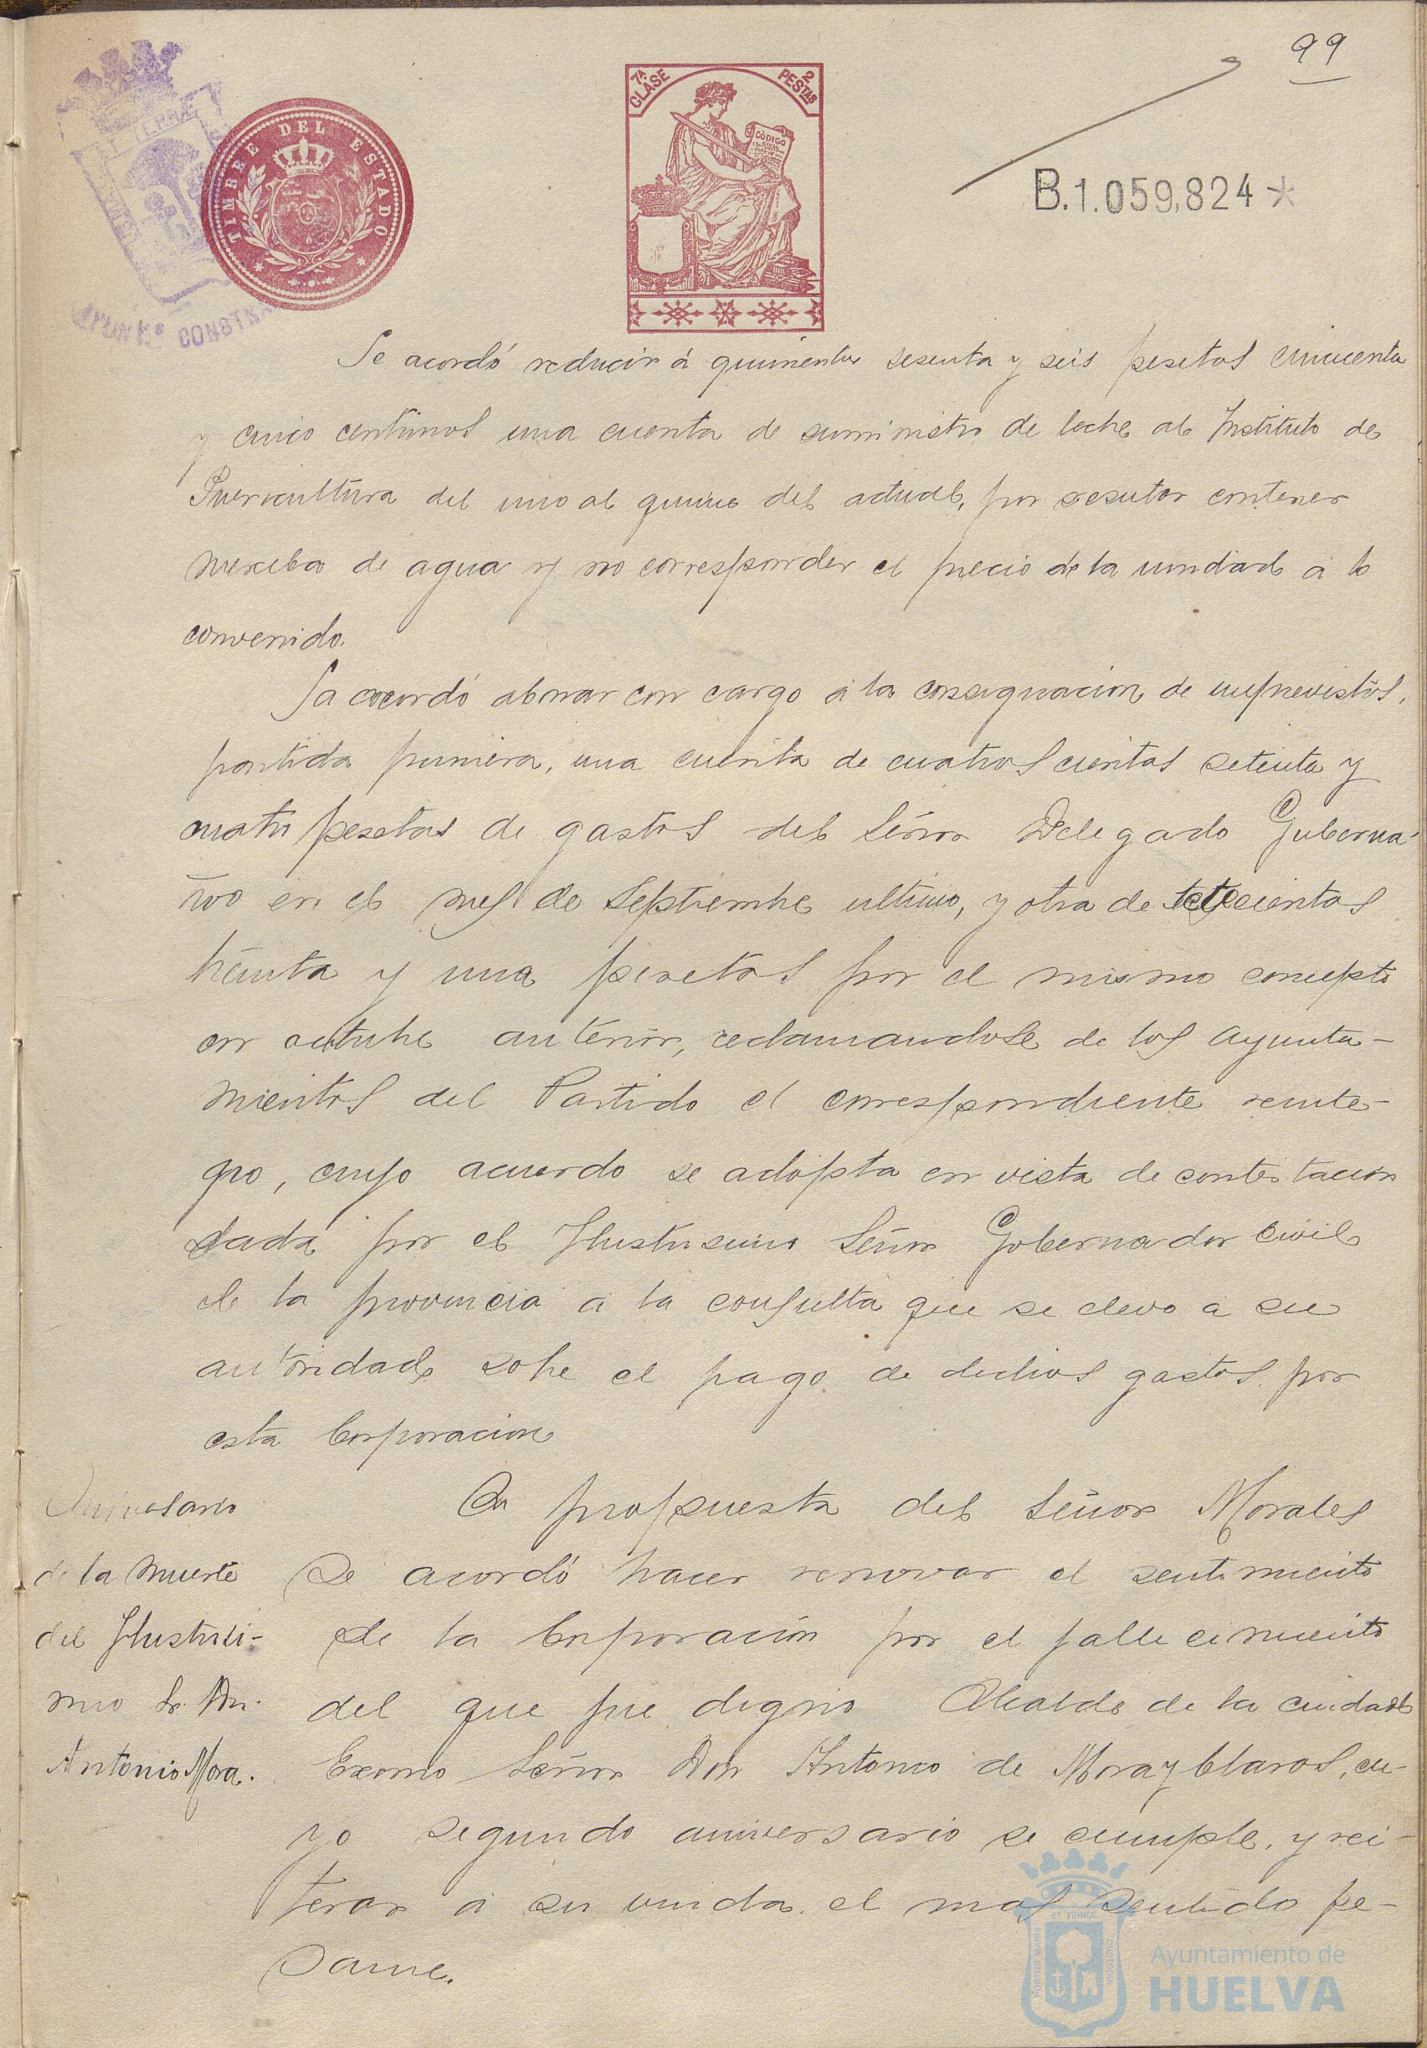 99
7ª CLASE
2 PESTAS
CÓDIGO
TIMBRE DEL ESTADO
AYUNTº CONSTNAL
B.1.059,824*
Se acordó reducir á quinientas sesenta y seis pesetas cincuenta
y cinco centimos una cuenta de suministro de leche al Instituto de
Puericultura del uno al quince del actual, por resultar contener
mezcla de agua y no corresponder el precio de la unidad á lo
convenido.
Sa acordó abonar con cargo á la consignacion de imprevistos,
partida primera, una cuenta de cuatroscientas setenta y
cuatro pesetas de gastos del Señor Delegado Guberna-
tivo en el mes de Septiembre ultimo, y otra de setecientas
treinta y una pesetas por el mismo concepto
en octubre anterior, reclamandose de los Ayunta-
mientos del Partido el correspondiente reinte-
gro, cuyo acuerdo se adopta en vista de contestacion
dada por el Ilustrisimo Señor Gobernador civil
de la provincia á la consulta que se elevó a su
autoridad sobre el pago de dichos gastos por
esta Corporacion
Aniversario
de la muerte
del Ilustrisi-
mo Sr. Dn.
Antonio Mora.
A propuesta del Señor Morales
se acordó hacer renovar el sentimiento
de la Corporación por el fallecimiento
del que fue digno Alcalde de la ciudad
Excmo Señor Don Antonio de Mora y Claros, cu-
yo segundo aniversario se cumple, y rei-
terar á su viuda el mas sentido pe-
same.
Ayuntamiento de
HUELVA